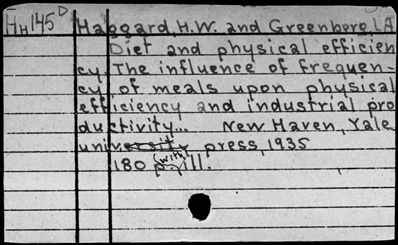 HH145D Haggard, H.W. and Greenberg, L.A.
Diet and physical efficien
cy. The influence of frequen-
cy of meals upon physical
effisiency and industrial pro
ductivity... New Haven, Yale
university press, 1935
(with)
180 p. ill.